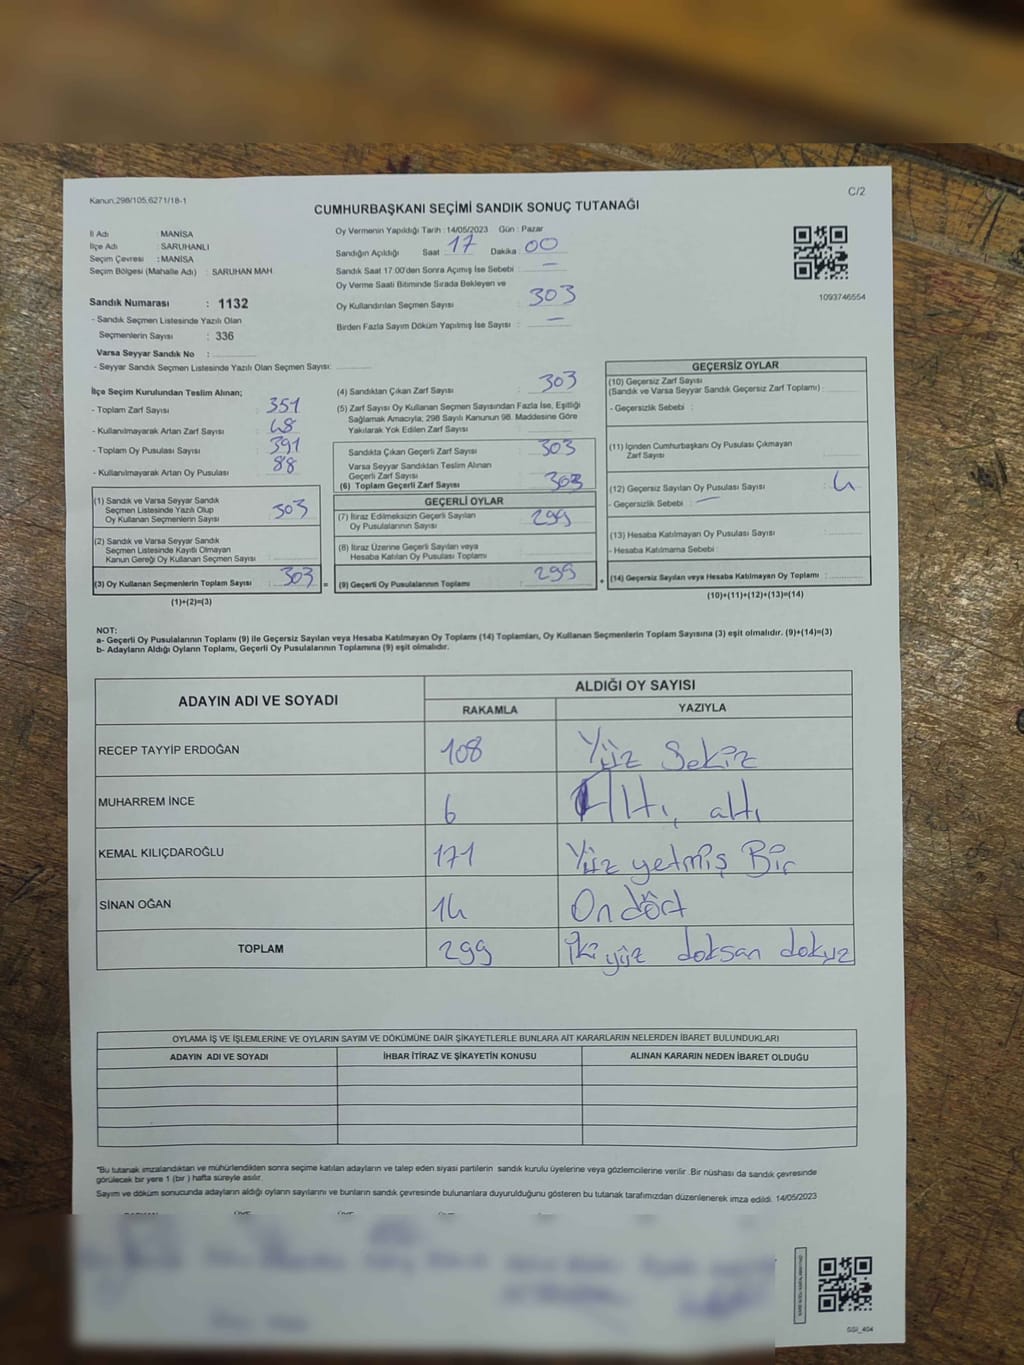 Kanun,298/105,6271/18-1
C/2
CUMHURBAŞKANI SEÇİMİ SANDIK SONUÇ TUTANAĞI
İl Adı : MANİSA
İlçe Adı : SARUHANLI
Seçim Çevresi : MANİSA
Seçim Bölgesi (Mahalle Adı) : SARUHAN MAH
Sandık Numarası : 1132
- Sandık Seçmen Listesinde Yazılı Olan
Seçmenlerin Sayısı : 336
Varsa Seyyar Sandık No :
- Seyyar Sandık Seçmen Listesinde Yazılı Olan Seçmen Sayısı:
Oy Vermenin Yapıldığı Tarih : 14/05/2023 Gün : Pazar
Sandığın Açıldığı Saat 17 Dakika : 00
Sandık Saat 17.00'den Sonra Açımış İse Sebebi : —
Oy Verme Saati Bitiminde Sırada Bekleyen ve
Oy Kullandırılan Seçmen Sayısı : 303
Birden Fazla Sayım Döküm Yapılmış İse Sayısı : —
1093746554
İlçe Seçim Kurulundan Teslim Alınan;
- Toplam Zarf Sayısı : 351
- Kullanılmayarak Artan Zarf Sayısı : 48
- Toplam Oy Pusulası Sayısı : 391
- Kullanılmayarak Artan Oy Pusulası : 88
(1) Sandık ve Varsa Seyyar Sandık
Seçmen Listesinde Yazılı Olup
Oy Kullanan Seçmenlerin Sayısı : 303
(2) Sandık ve Varsa Seyyar Sandık
Seçmen Listesinde Kayıtlı Olmayan
Kanun Gereği Oy Kullanan Seçmen Sayısı :
(3) Oy Kullanan Seçmenlerin Toplam Sayısı : 303 =
(1)+(2)=(3)
(4) Sandıktan Çıkan Zarf Sayısı : 303
(5) Zarf Sayısı Oy Kullanan Seçmen Sayısından Fazla İse, Eşitliği
Sağlamak Amacıyla; 298 Sayılı Kanunun 98. Maddesine Göre
Yakılarak Yok Edilen Zarf Sayısı :
Sandıkta Çıkan Geçerli Zarf Sayısı : 303
Varsa Seyyar Sandıktan Teslim Alınan
Geçerli Zarf Sayısı :
(6) Toplam Geçerli Zarf Sayısı : 303
GEÇERLİ OYLAR
(7) İtiraz Edilmeksizin Geçerli Sayılan
Oy Pusulalarının Sayısı : 299
(8) İtiraz Üzerine Geçerli Sayılan veya
Hesaba Katılan Oy Pusulası Toplamı :
(9) Geçerli Oy Pusulalarının Toplamı : 299 +
GEÇERSİZ OYLAR
(10) Geçersiz Zarf Sayısı
(Sandık ve Varsa Seyyar Sandık Geçersiz Zarf Toplamı) :
- Geçersizlik Sebebi :
(11) İçinden Cumhurbaşkanı Oy Pusulası Çıkmayan
Zarf Sayısı :
(12) Geçersiz Sayılan Oy Pusulası Sayısı : 4
- Geçersizlik Sebebi : —
(13) Hesaba Katılmayan Oy Pusulası Sayısı :
- Hesaba Katılmama Sebebi :
(14) Geçersiz Sayılan veya Hesaba Katılmayan Oy Toplamı :
(10)+(11)+(12)+(13)=(14)
NOT:
a- Geçerli Oy Pusulalarının Toplamı (9) ile Geçersiz Sayılan veya Hesaba Katılmayan Oy Toplamı (14) Toplamları, Oy Kullanan Seçmenlerin Toplam Sayısına (3) eşit olmalıdır. (9)+(14)=(3)
b- Adayların Aldığı Oyların Toplamı, Geçerli Oy Pusulalarının Toplamına (9) eşit olmalıdır.
ADAYIN ADI VE SOYADI ALDIĞI OY SAYISI
RAKAMLA YAZIYLA
RECEP TAYYİP ERDOĞAN 108 Yüz Sekiz
MUHARREM İNCE 6 Altı, altı
KEMAL KILIÇDAROĞLU 171 Yüz yetmiş Bir
SİNAN OĞAN 14 On dört
TOPLAM 299 İki yüz doksan dokuz
OYLAMA İŞ VE İŞLEMLERİNE VE OYLARIN SAYIM VE DÖKÜMÜNE DAİR ŞİKAYETLERLE BUNLARA AİT KARARLARIN NELERDEN İBARET BULUNDUKLARI
ADAYIN ADI VE SOYADI İHBAR İTİRAZ VE ŞİKAYETİN KONUSU ALINAN KARARIN NEDEN İBARET OLDUĞU
"Bu tutanak imzalandıktan ve mühürlendikten sonra seçime katılan adayların ve talep eden siyasi partilerin sandık kurulu üyelerine veya gözlemcilerine verilir .Bir nüshası da sandık çevresinde
görülecek bir yere 1 (bir ) hafta süreyle asılır.
Sayım ve döküm sonucunda adayların aldığı oyların sayılarını ve bunların sandık çevresinde bulunanlara duyurulduğunu gösteren bu tutanak tarafımızdan düzenlenerek imza edildi. 14/05/2023
GSI_404